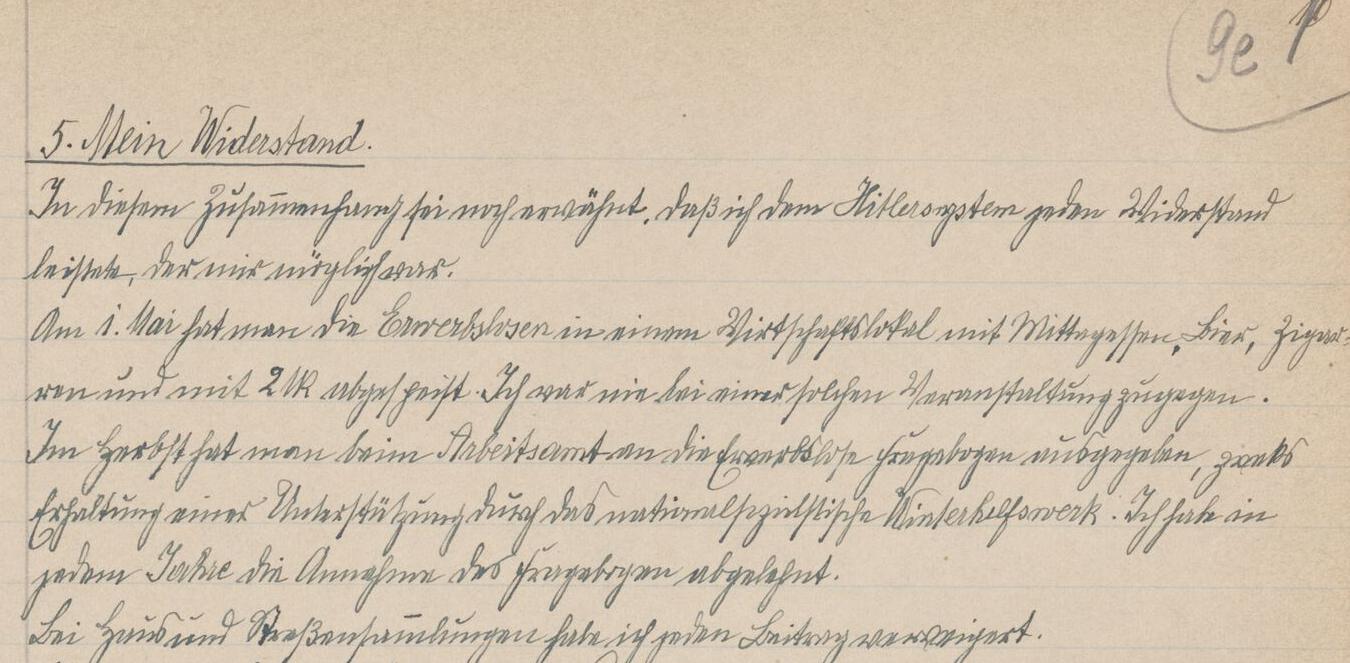 9e
5. Mein Widerstand.
In diesem Zusam̅enhang sei noch erwähnt, daß ich dem Hitlersystem jeden Widerstand
leistete, der mir möglich war.
Am 1. Mai hat man die Erwerbslosen in einem Wirtschaftslokal mit Mittagessen, Bier, Zigar-
ren und mit 2 M abgespeist. Ich war nie bei einer solchen Veranstaltung zugegen.
Im Herbst hat man beim Arbeitsamt an die Erwerbslose Fragebogen ausgegeben, zwecks
Erhaltung einer Unterstützung durch das nationalsozialistische Winterhilfswerk. Ich habe in
jedem Jahre die Annahme des Fragebogen abgelehnt.
Bei Haus und Straßensam̅lungen habe ich jeden Beitrag verweigert.